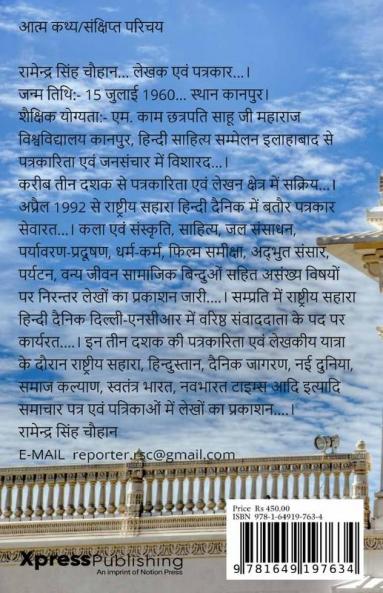 आत्म कथ्य/संक्षिप्त परिचय
रामेन्द्र सिंह चौहान... लेखक एवं पत्रकार...।
जन्म तिथि:- 15 जुलाई 1960... स्थान कानपुर।
शैक्षिक योग्यता:- एम. काम छत्रपति साहू जी महाराज
विश्वविद्यालय कानपुर, हिन्दी साहित्य सम्मेलन इलाहाबाद से
पत्रकारिता एवं जनसंचार में विशारद...।
करीब तीन दशक से पत्रकारिता एवं लेखन क्षेत्र में सक्रिय...।
अप्रैल 1992 से राष्ट्रीय सहारा हिन्दी दैनिक में बतौर पत्रकार
सेवारत...। कला एवं संस्कृति, साहित्य, जल संसाधन,
पर्यावरण-प्रदूषण, धर्म-कर्म, फिल्म समीक्षा, अद्भुत संसार,
पर्यटन, वन्य जीवन सामाजिक बिन्दुओं सहित असंख्य विषयों
पर निरन्तर लेखों का प्रकाशन जारी....। सम्प्रति में राष्ट्रीय सहारा
हिन्दी दैनिक दिल्ली-एनसीआर में वरिष्ठ संवाददाता के पद पर
कार्यरत....। इन तीन दशक की पत्रकारिता एवं लेखकीय यात्रा
के दौरान राष्ट्रीय सहारा, हिन्दुस्तान, दैनिक जागरण, नई दुनिया,
समाज कल्याण, स्वतंत्र भारत, नवभारत टाइम्स आदि इत्यादि
समाचार पत्र एवं पत्रिकाओं में लेखों का प्रकाशन....।
रामेन्द्र सिंह चौहान
E-MAIL reporter.rsc@gmail.com
Price Rs 450.00
ISBN 978-1-64919-763-4
9 781649 197634
XpressPublishing
An imprint of Notion Press